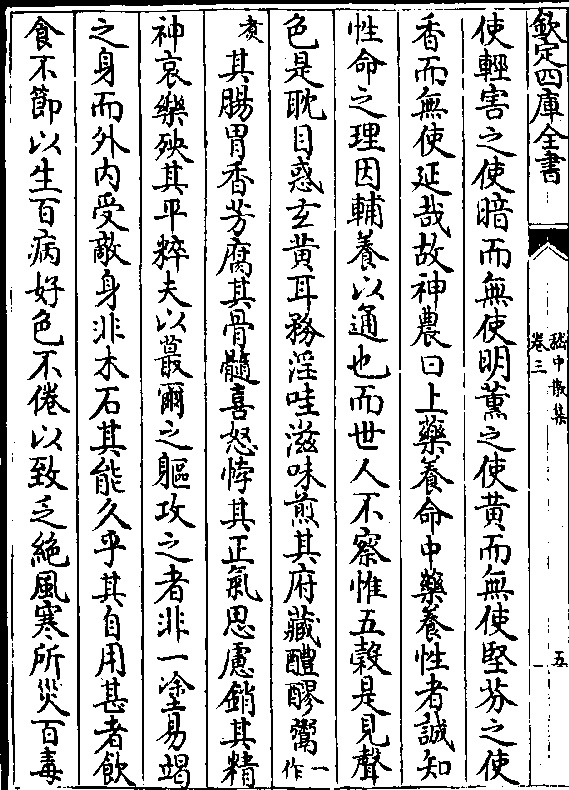 欽定四庫全書
嵇中散集
卷三
五
使輕害之使暗而無使明薰之使黄而無使堅芬之使
香而無使延哉故神農曰上藥養命中藥養性者誠知
性命之理因輔養以通也而世人不察惟五穀是見聲
色是耽目惑玄黄耳務淫哇滋味煎其府藏醴醪鬻一作
煑其腸胃香芳腐其骨髓喜怒悖其正氣思慮銷其精
神哀樂殃其平粹夫以蕞爾之軀攻之者非一塗易竭
之身而外内受敵身非木石其能久乎其自用甚者飲
食不節以生百病好色不倦以致乏絶風寒所災百毒